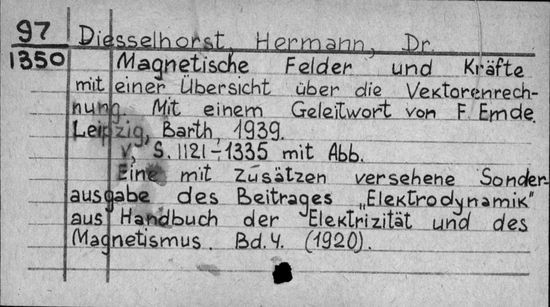 97
1350
Diesselhorst, Hermann, Dr.
Magnetische Felder und Kräfte
mit einer Übersicht über die Vektorenrech-
nung. Mit einem Geleitwort von F. Emde.
Leipzig, Barth, 1939.
V, S. 1121-1335 mit Abb.
Eine mit Zusätzen versehene Sonder
ausgabe des Beitrages „Elektrodynamik"
aus Handbuch der Elektrizität und des
Magnetismus. Bd. 4. (1920).